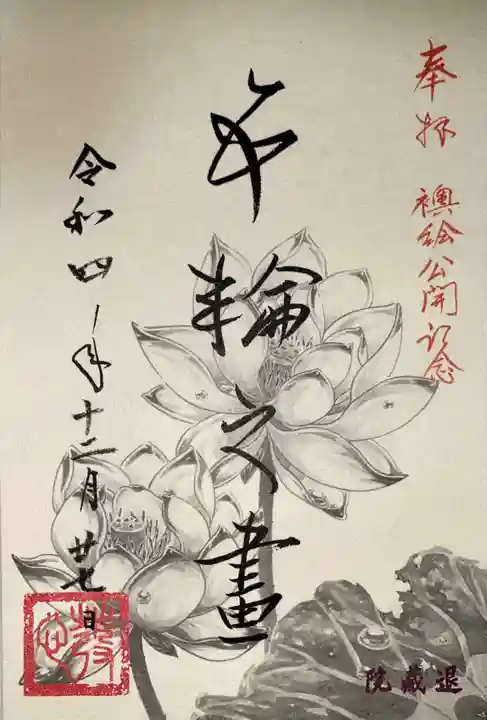 奉拝 襖絵公開記念
年輪之畫
令和四年十二月廿七日
退蔵院